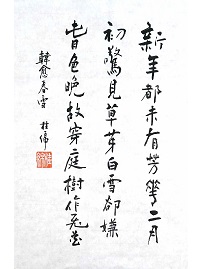 新年都未有芳華二月
初驚見草芽白雪卻嫌
春色晚故穿庭樹作飛花
韓愈春雪